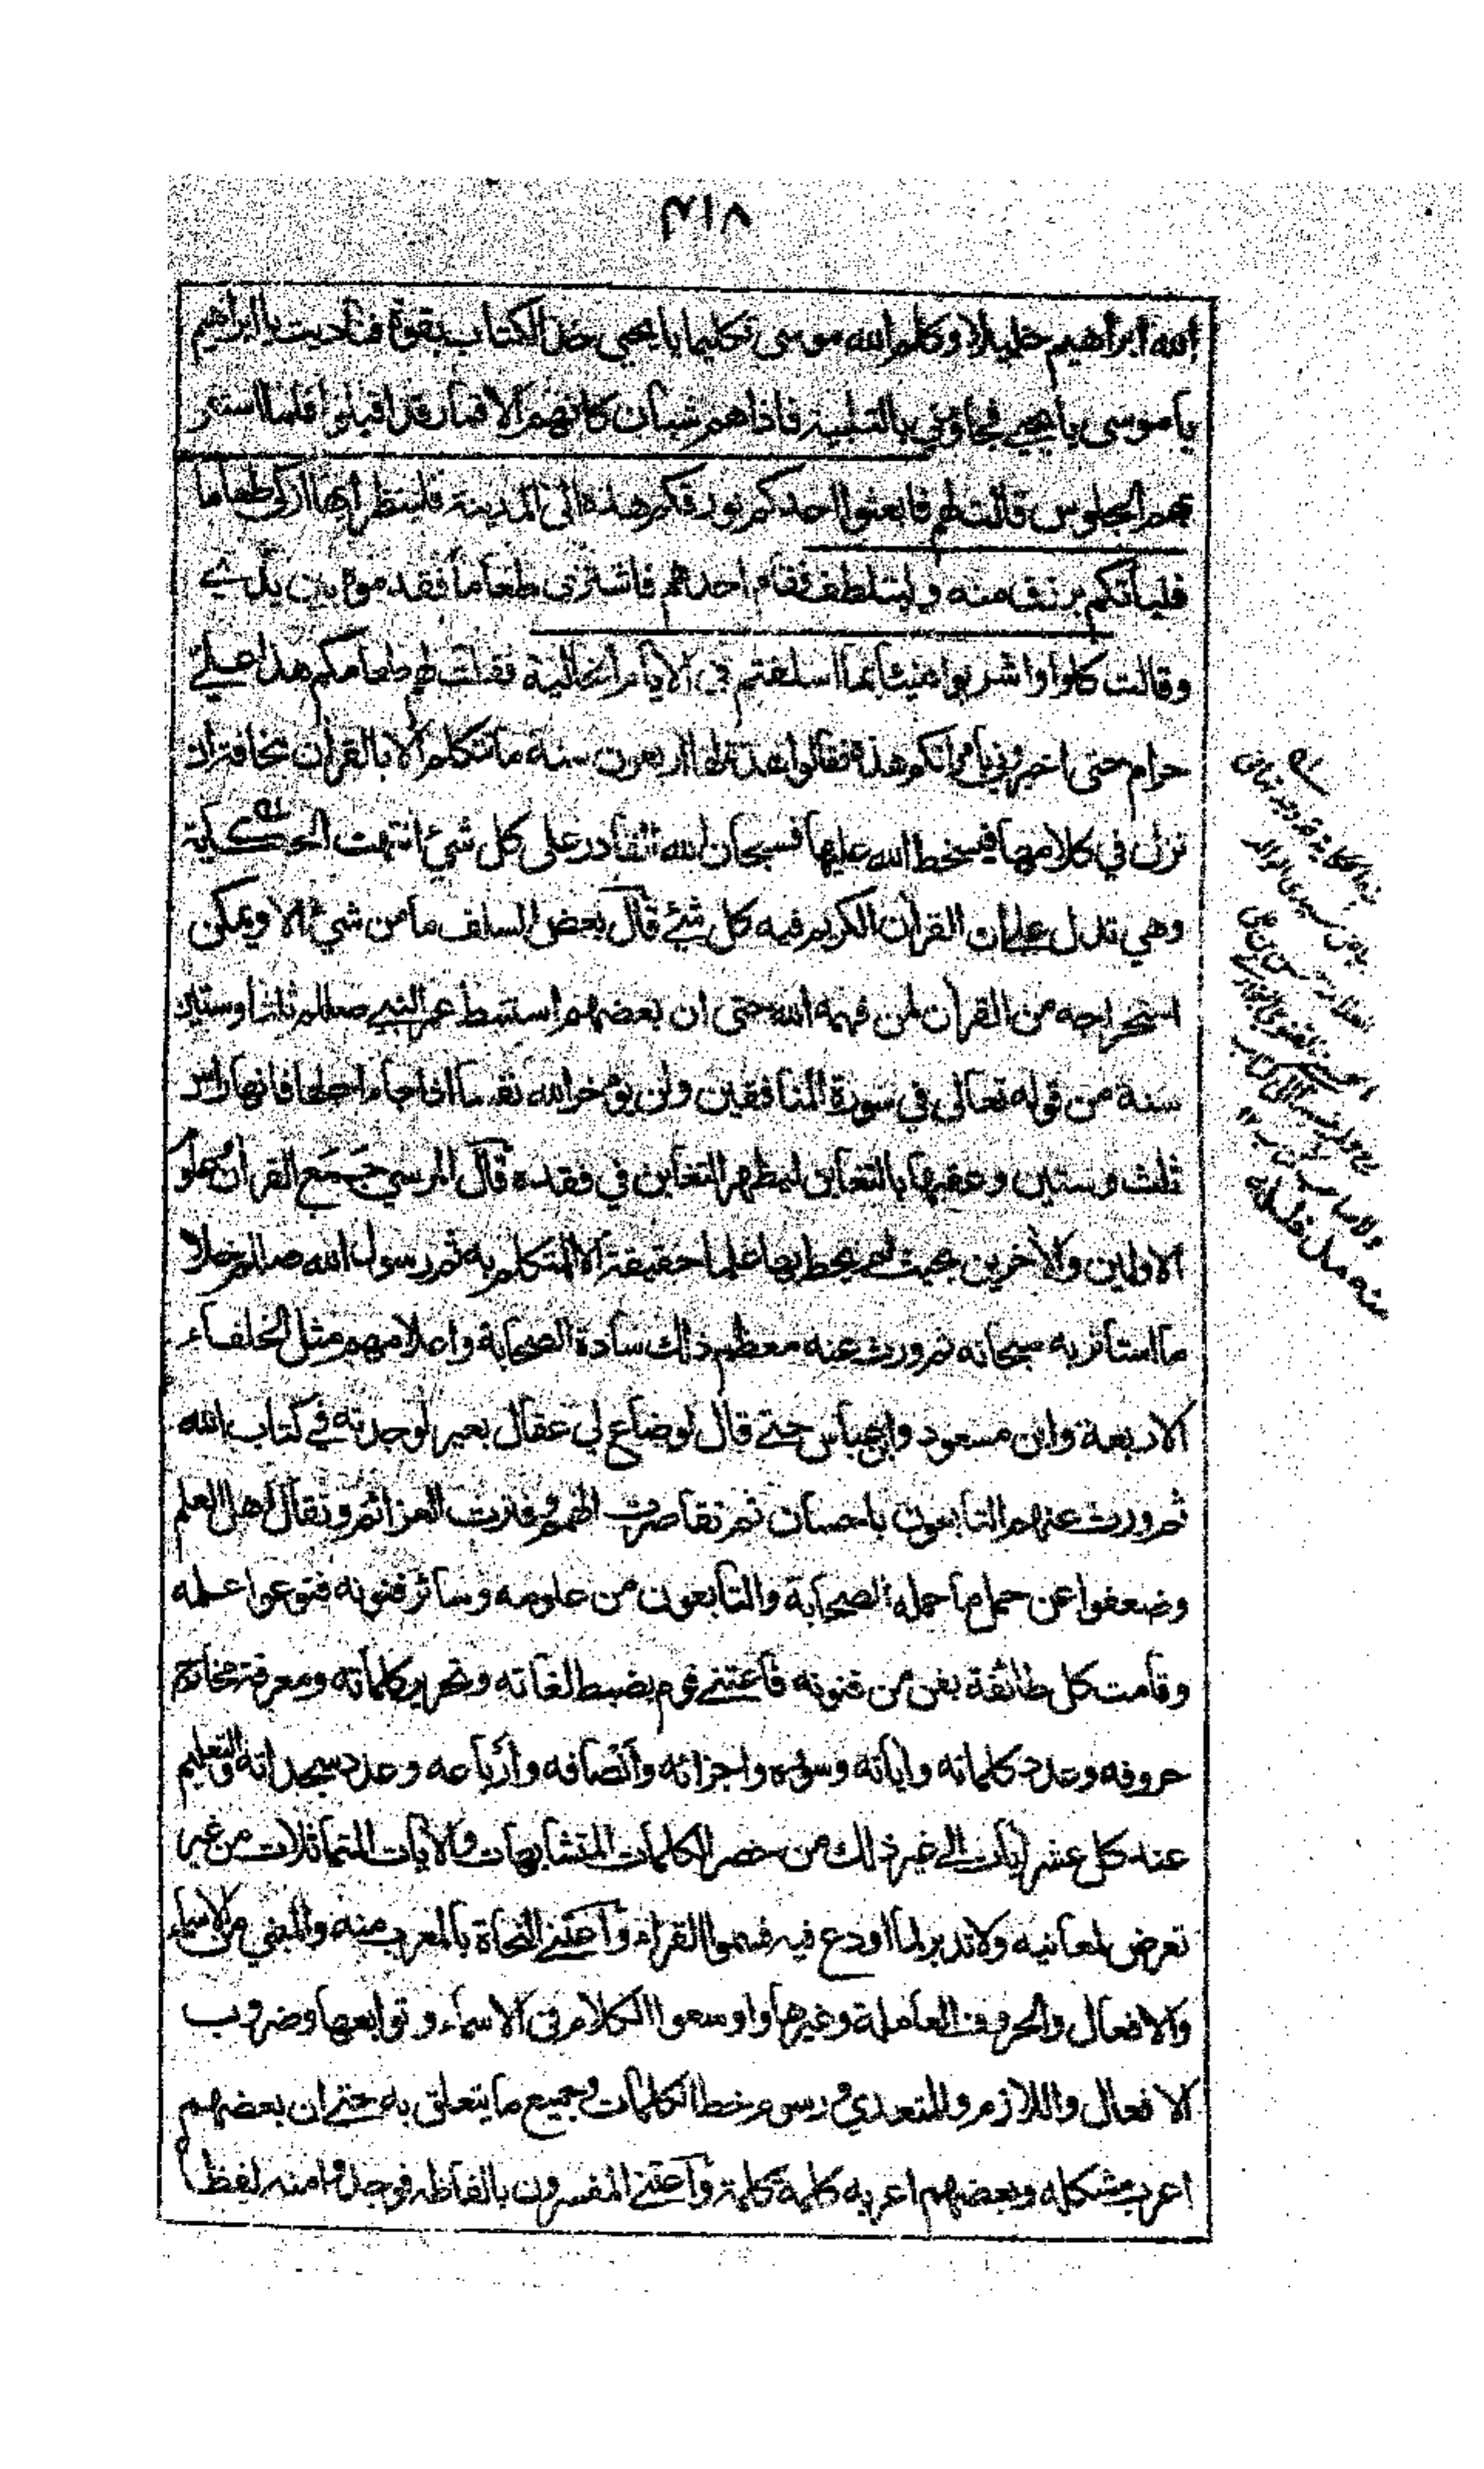 ٣١٨
الله ابراهيم خليلا وكلم الله موسى تكليما يا يحيى خذ الكتاب بقوة فناديت يا ابراهيم
يا موسى يا يحيى فجاؤني بالتلبية فاذا هم شبان كانهم الاقمار قد اقبلوا فلما استقر
بهم الجلوس قالت لهم فابعثوا احدكم بورقكم هذه الى المدينة فلينظر ايها ازكى طعاما
فلياتكم برزق منه وليتلطف فقام احدهم فاشترى طعاما فقدموه بين يدي
وقالت كلوا واشربوا هنيئا بما اسلفتم في الايام الخالية فقلت لهم طعامكم هذا علي
حرام حتى اخبروني بامرأتكم هذه فقالوا هذه لها اربعون سنة ما تتكلم الا بالقران مخافة ان
تزل في كلامها فيسخط الله عليها فسبحان الله القادر على كل شيء انتهت الحكاية
وهي تدل على ان القران الكريم فيه كل شئ قال بعض السلف ما من شيء الا ويمكن
استخراجه من القرأن لمن فهمه الله حتى ان بعضهم استنبط عمر النبي صللم ثلثا وستين
سنة من قوله تعالى في سورة المنافقين ولن يؤخر الله نفسا اذا جاء اجلها فانها راس
ثلث وستين وعقبها بالتغابن ليظهر التغابن في فقده قال المرسي جَمَع القرأن علوم
الاولين والأخرين بحيث لم يحط بها علما حقيقة الا المتكلم به ثم رسول الله صللم خلا
ما استاثر به سبحانه ثم ورث عنه معظم ذلك سادة الصحابة واعلامهم مثل الخلفاء
الاربعة وابن مسعود وابن عباس حتى قال لو ضاع لي عقال بعير لوجدته في كتاب الله
ثم ورث عنهم التابعون باحسان ثم تقاصرت الهمم وفترت العزائم وتقال اهل العلم
وضعفوا عن حمل ما حمله الصحابة والتابعون من علومه وسائر فنونه فنوعوا علمه
وقامت كل طائفة بفن من فنونه فاعتنى قوم بضبط لغاته وتحرير كلماته ومعرفة مخارج
حروفه وعدد كلماته واياته وسوره واجزائه وانصافه وارباعه وعدد سجداته والتعليم
عند كل عشر أيات الى غير ذلك من حصر الكلمات المتشابهات والأيات المتماثلات من غير
تعرض لمعانيه ولا تدبر لما اودع فيه فسموا القراء واعتنى النحاة بالمعرب منه والمبني من الاسماء
والافعال والحروف العاملة وغيرها واوسعوا الكلام في الاسماء وتوابعها وضروب
الافعال واللازم والمتعدي ورسوم خط الكلمات وجميع ما يتعلق به حتى ان بعضهم
اعرب مشكله وبعضهم اعربه كلمة كلمة واعتنى المفسرون بالفاظه فوجدوا منه لفظا